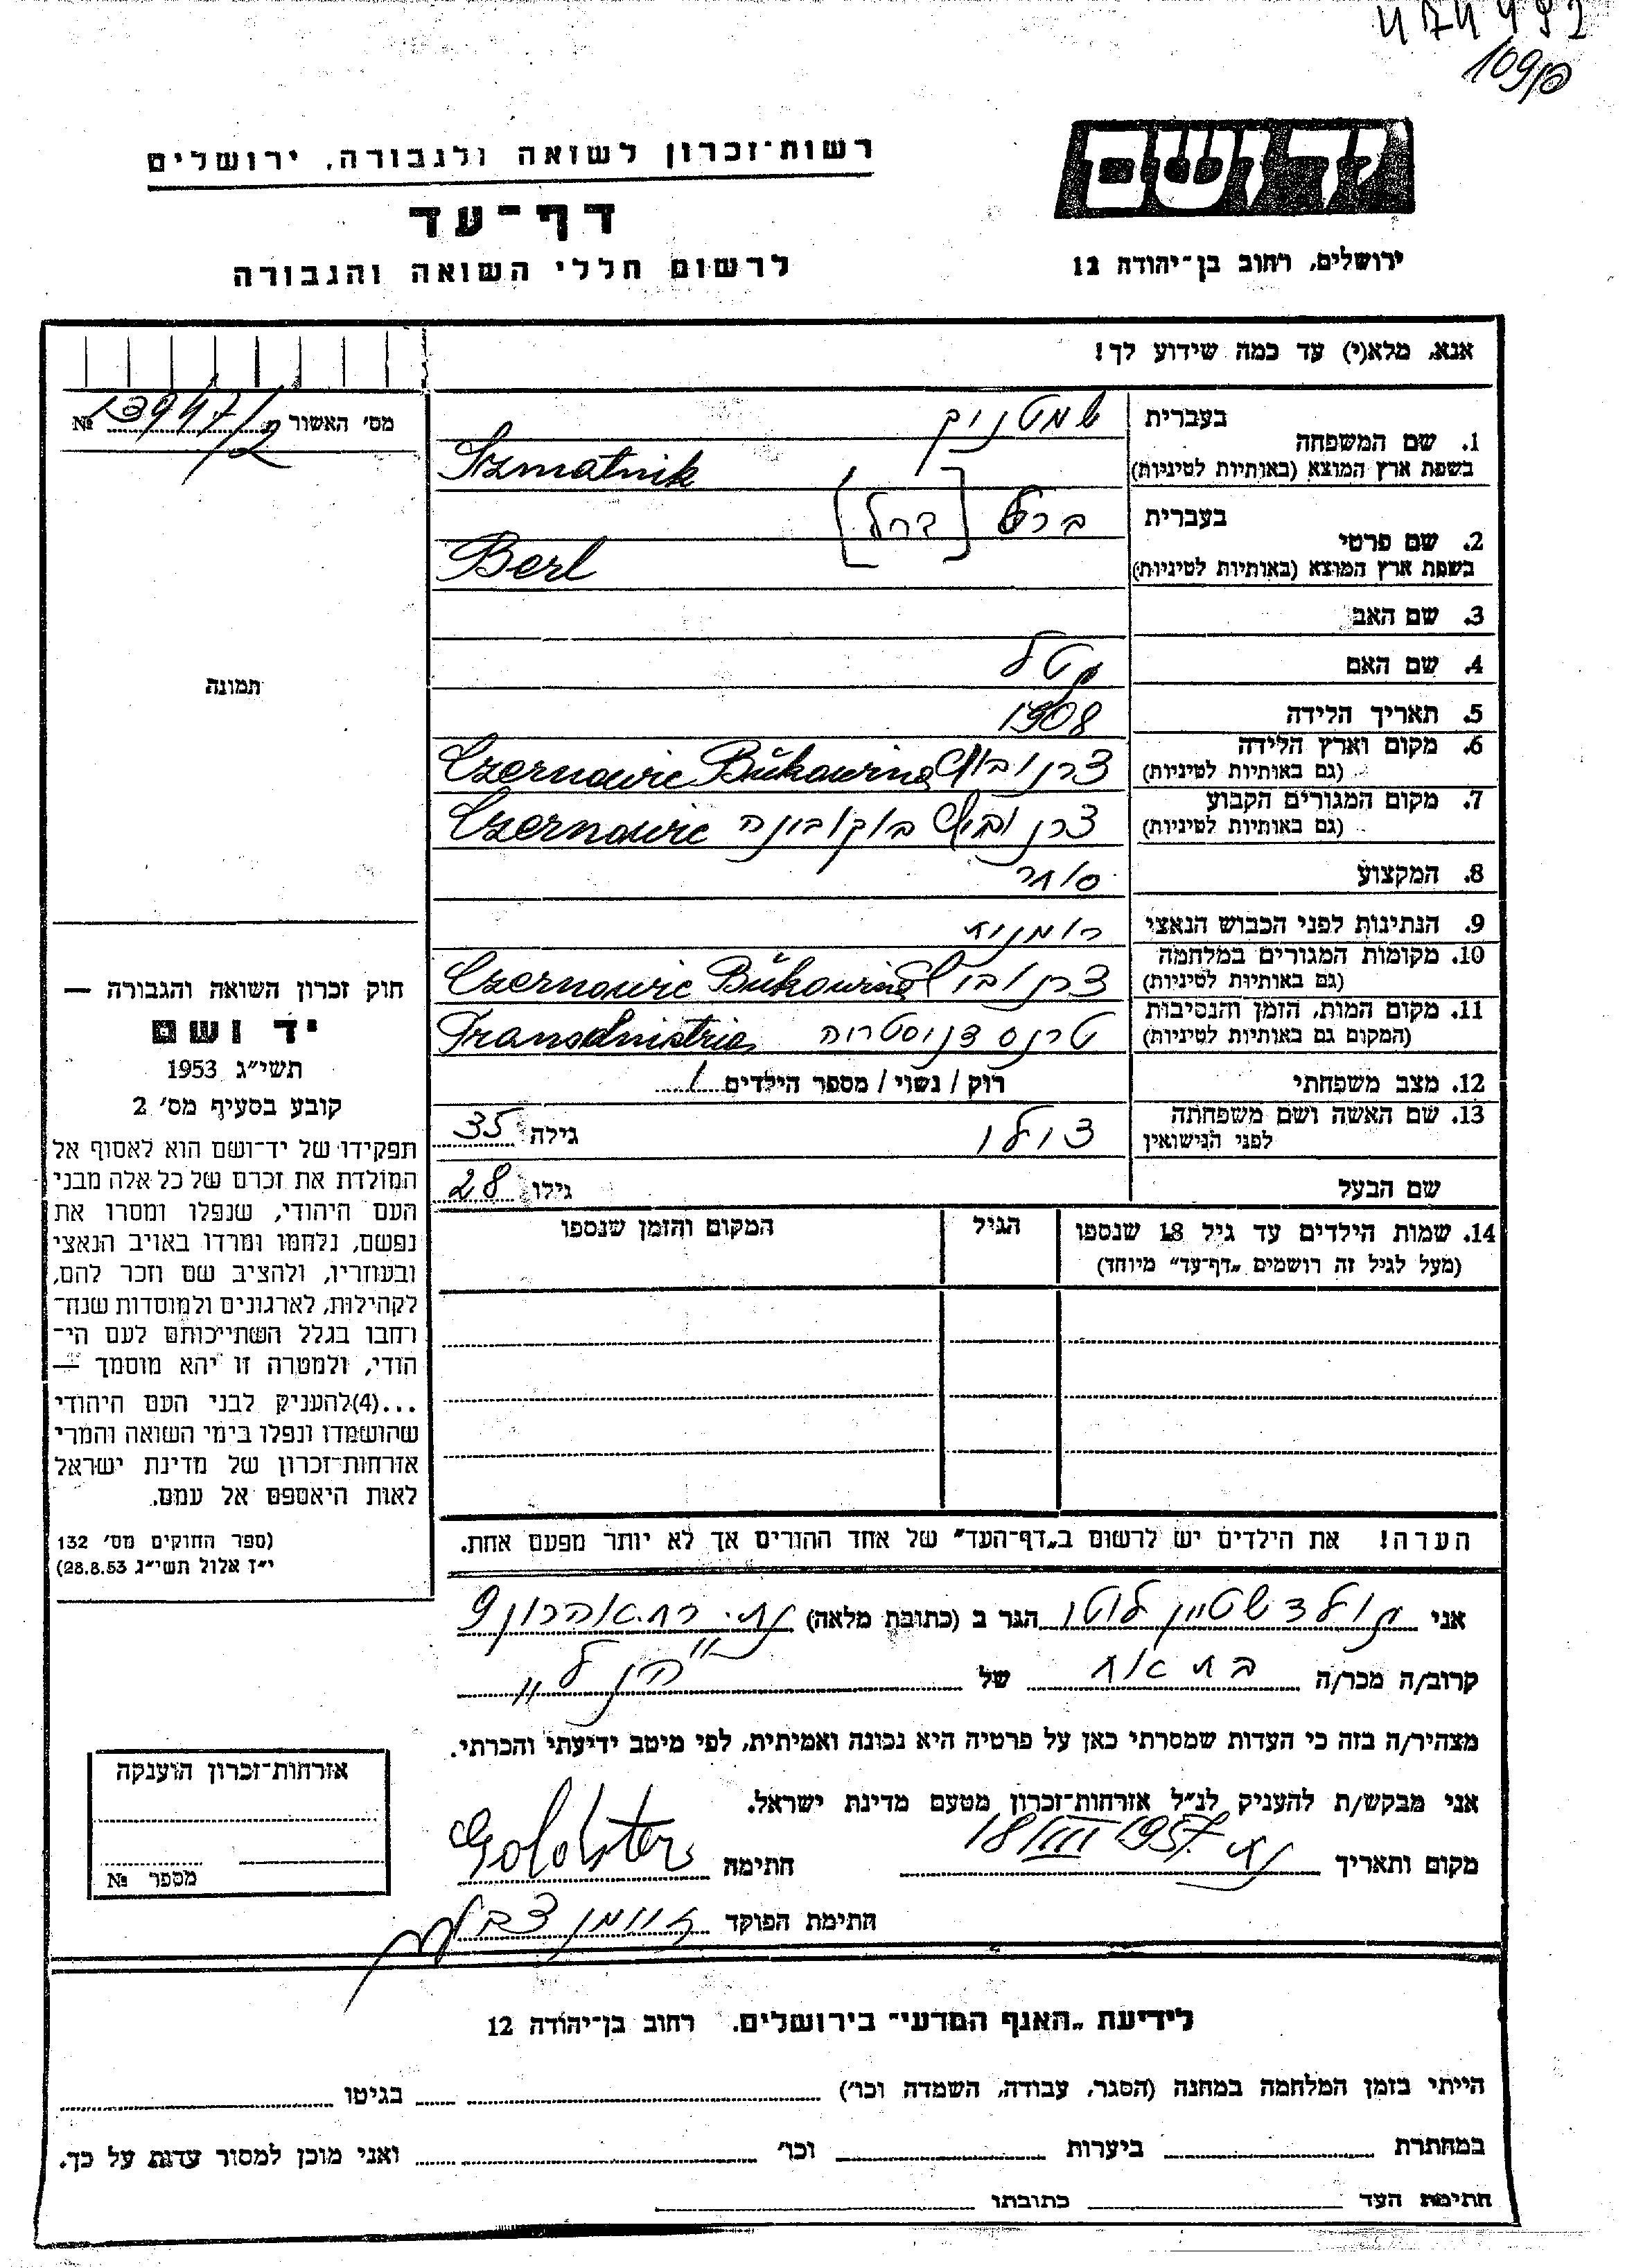 474492
109
רשות־זכרון לשואה ולגבורה, ירושלים
דף־עד
לרשום חללי השואה והגבורה
יד ושם
ירושלים, רחוב בן־יהודה 12
אנא, מלא(י) עד כמה שידוע לך!
מס׳ האשור № 13947/2
בעברית שמטניק
1. שם המשפחה
בשפת ארץ המוצא (באותיות לטיניות) Szmatnik
בעברית ברל [ברל]
2. שם פרטי
בשפת ארץ המוצא (באותיות לטיניות) Berl
3. שם האב
4. שם האם
5. תאריך הלידה 1908
6. מקום וארץ הלידה
(גם באותיות לטיניות) Czernowic Bukowina
7. מקום המגורים הקבוע
(גם באותיות לטיניות) בוקובינה Czernowic
8. המקצוע סוחר
9. הנתינות לפני הכבוש הנאצי רומנית
10. מקומות המגורים במלחמה
(גם באותיות לטיניות) Czernowic Bukowina
11. מקום המות, הזמן והנסיבות
(המקום גם באותיות לטיניות) טרנסדניסטריה Transdnistria
12. מצב משפחתי רוק / נשוי / מספר הילדים 1
13. שם האשה ושם משפחתה
לפני הנישואין גילה 35
שם הבעל גילו 28
14. שמות הילדים עד גיל 18 שנספו
(מעל לגיל זה רושמים „דף־עד״ מיוחד)
הגיל
המקום והזמן שנספו
תמונה
חוק זכרון השואה והגבורה —
יד ושם
תשי״ג 1953
קובע בסעיף מס׳ 2
תפקידו של יד־ושם הוא לאסוף אל
המולדת את זכרם של כל אלה מבני
העם היהודי, שנפלו ומסרו את
נפשם, נלחמו ומרדו באויב הנאצי
ובעוזריו, ולהציב שם וזכר להם,
לקהילות, לארגונים ולמוסדות שנח־
רחבו בגלל השתייכותם לעם הי־
הודי, ולמטרה זו יהא מוסמך —
...(4)להעניק לבני העם היהודי
שהושמדו ונפלו בימי השואה והמרי
אזרחות־זכרון של מדינת ישראל
לאות היאספם אל עמם.
(ספר החוקים מס׳ 132
י״ז אלול תשי״ג 28.8.53)
הערה! את הילדים יש לרשום ב„דף־העד״ של אחד ההורים אך לא יותר מפעם אחת.
אני גולדשטיין לוטי הגר ב (כתובת מלאה)
קרוב/ה מכר/ה בת אח של הנ״ל
מצהיר/ה בזה כי העדות שמסרתי כאן על פרטיה היא נכונה ואמיתית, לפי מיטב ידיעתי והכרתי.
אני מבקש/ת להעניק לנ״ל אזרחות־זכרון מטעם מדינת ישראל.
מקום ותאריך 18/III 1957 חתימה
חתימת הפוקד
אזרחות־זכרון הוענקה
מספר №
לידיעת „האגף המדעי״ בירושלים. רחוב בן־יהודה 12
הייתי בזמן המלחמה במחנה (הסגר, עבודה, השמדה וכו׳) בגיטו
במחתרת ביערות וכו׳ ואני מוכן למסור עדות על כך.
חתימת העד כתובתו